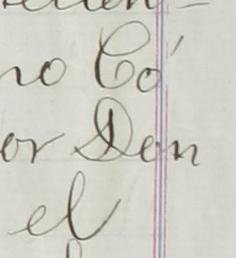 no Co'
or Don
el